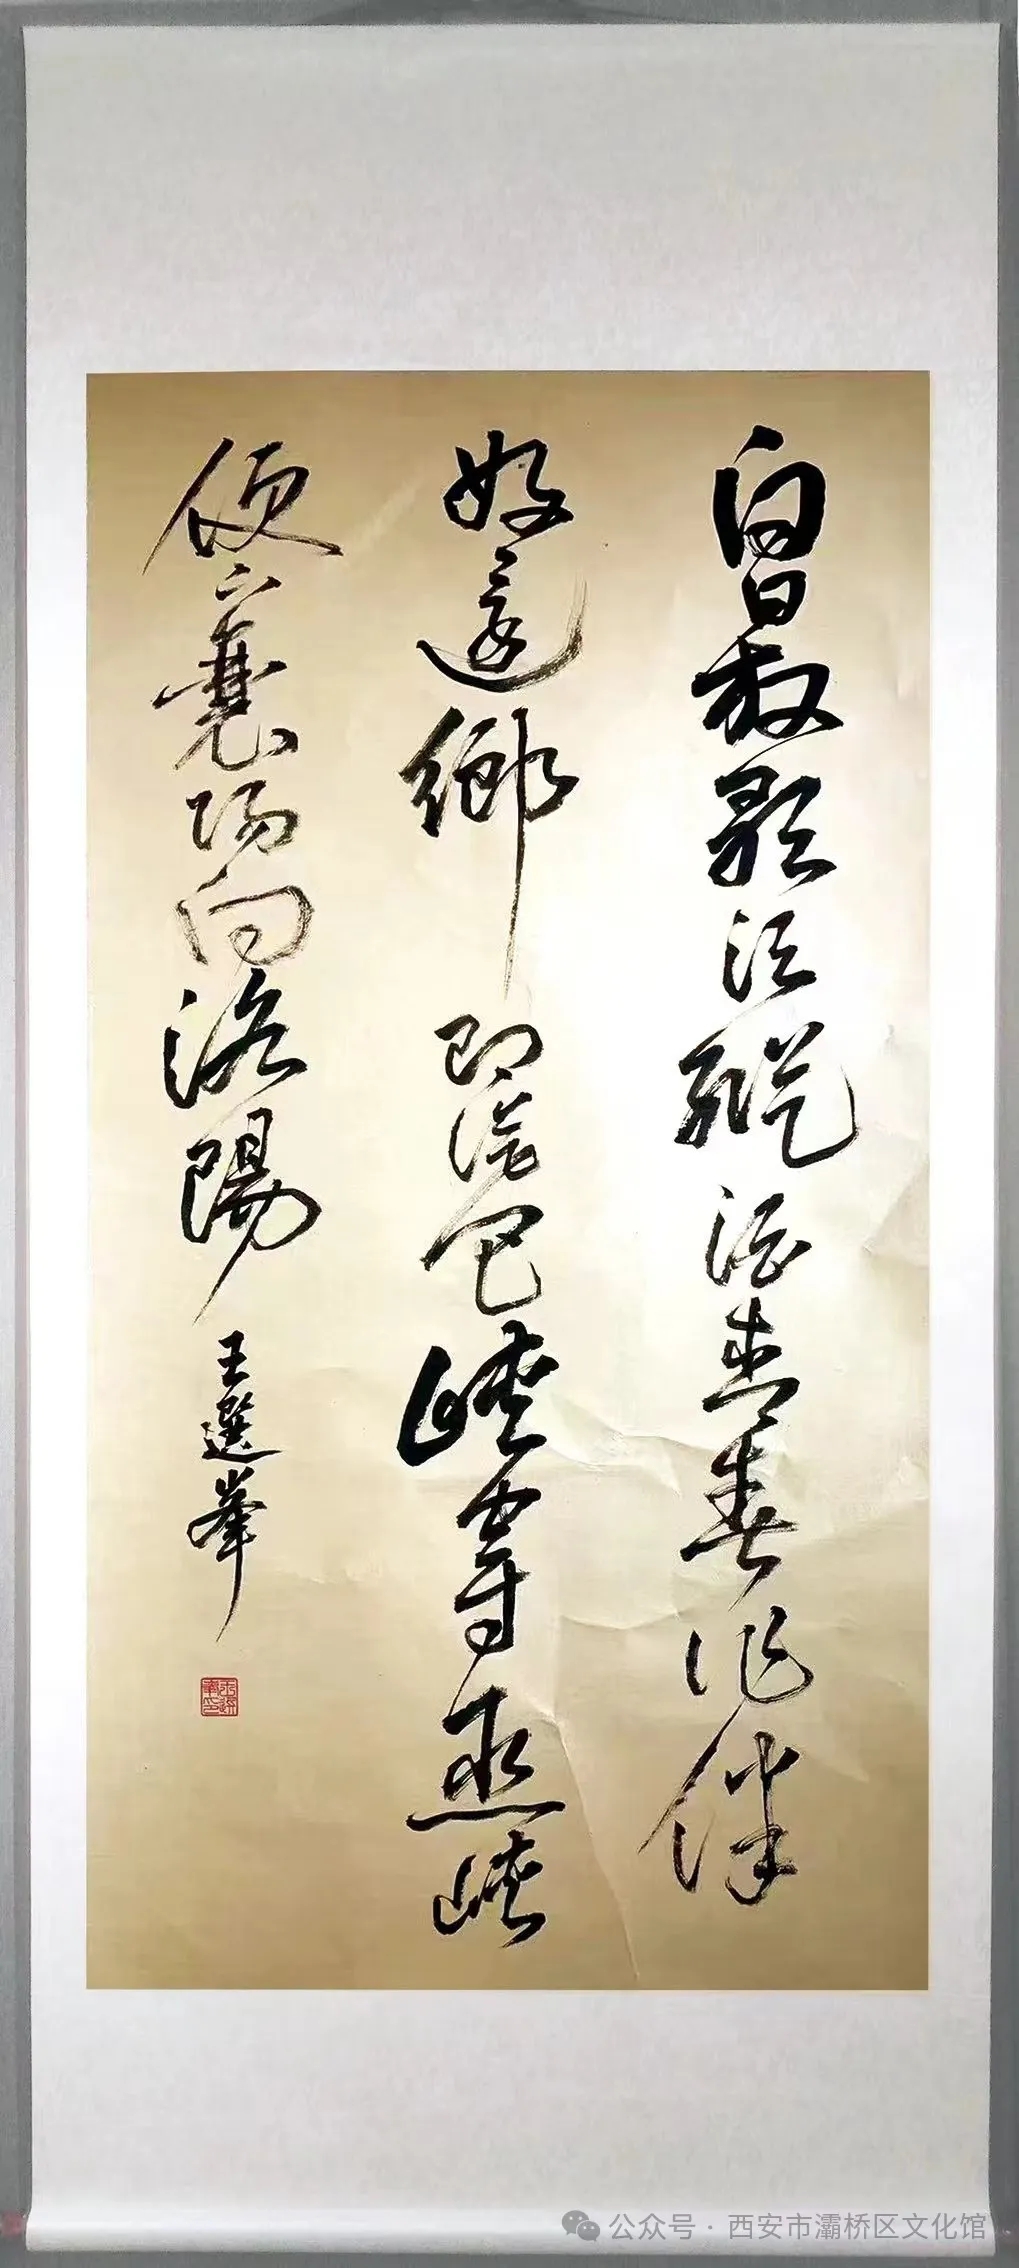 白日放歌須縱酒青春作伴
好還鄉即從巴峽穿巫峽
便下襄陽向洛陽
王選峯
公众号 · 西安市灞桥区文化馆